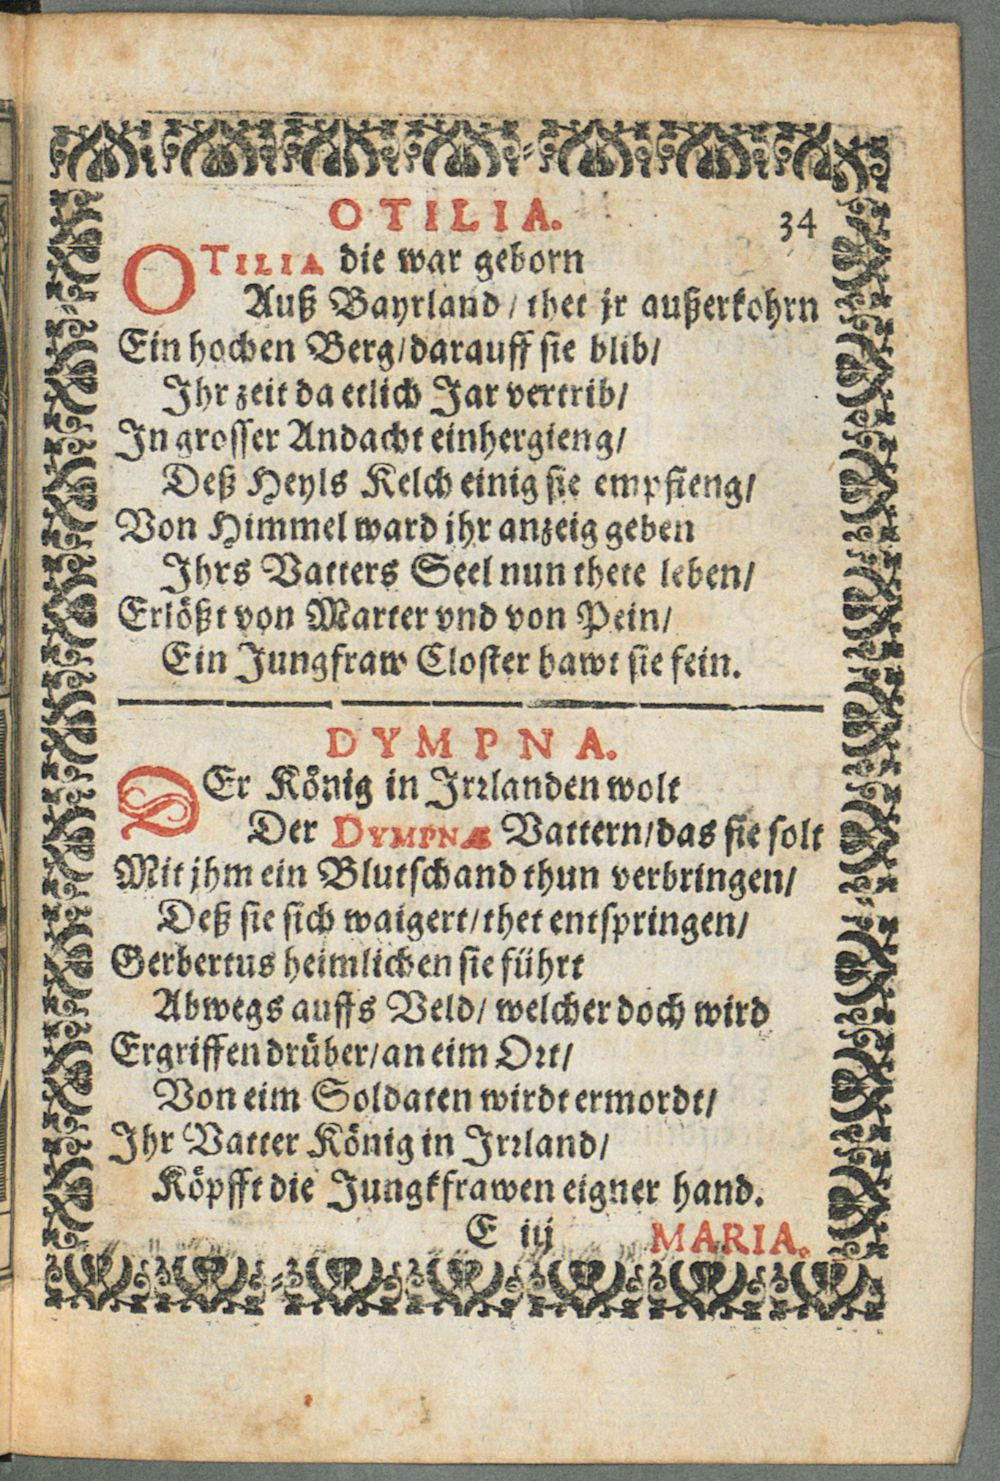 OTILIA.
34
OTILIA die war geborn
Auß Bayrland / thet jr außerkohrn
Ein hochen Berg / darauff sie blib /
Ihr zeit da etlich Jar vertrib /
In grosser Andacht einhergieng /
Deß Heyls Kelch einig sie empfieng /
Von Himmel ward jhr anzeig geben
Ihrs Vatters Seel nun thete leben /
Erlößt von Marter vnd von Pein /
Ein Jungfraw Closter bawt sie fein.
DYMPNA.
DEr König in Irrlanden wolt
Der DYMPNÆ Vattern / das sie solt
Mit jhm ein Blutschand thun verbringen /
Deß sie sich waigert / thet entspringen /
Gerbertus heimlichen sie führt
Abwegs auffs Veld / welcher doch wird
Ergriffen drüber / an eim Ort /
Von eim Soldaten wirdt ermordt /
Ihr Vatter König in Irrland /
Köpfft die Jungkfrawen eigner hand.
E iij
MARIA.